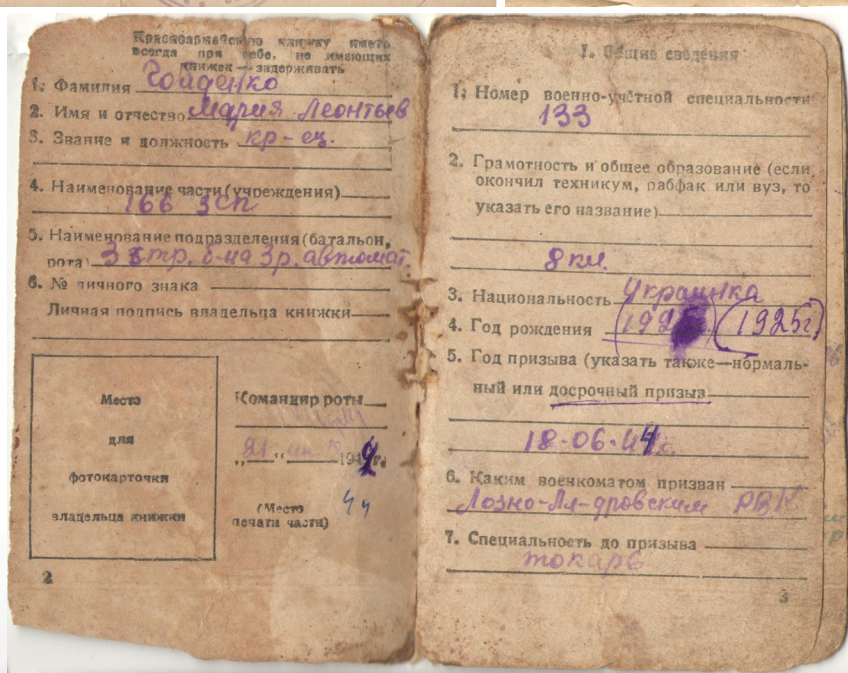 Красноармейскую книжку иметь
всегда при себе, не имеющих
книжек — задерживать
1. Фамилия Гойденко
2. Имя и отчество Мария Леонтьев
3. Звание и должность кр-ец.
4. Наименование части (учреждения)
166 ЗСП
5. Наименование подразделения (батальон,
рота) 3 стр. б-на 3р. автомат.
6. № личного знака
Личная подпись владельца книжки
Место
для
фотокарточки
владельца книжки
Командир роты
„21“ 194 г.
44
(Место
печати части)
2
I. Общие сведения
1. Номер военно-учётной специальности
133
2. Грамотность и общее образование (если
окончил техникум, рабфак или вуз, то
указать его название)
8 кл.
3. Национальность Украинка
4. Год рождения (192 (1925г)
5. Год призыва (указать также—нормаль-
ный или досрочный призыв
18-06-44г.
6. Каким военкоматом призван
Лозно-Ал-дровским РВК
7. Специальность до призыва
токарь
3